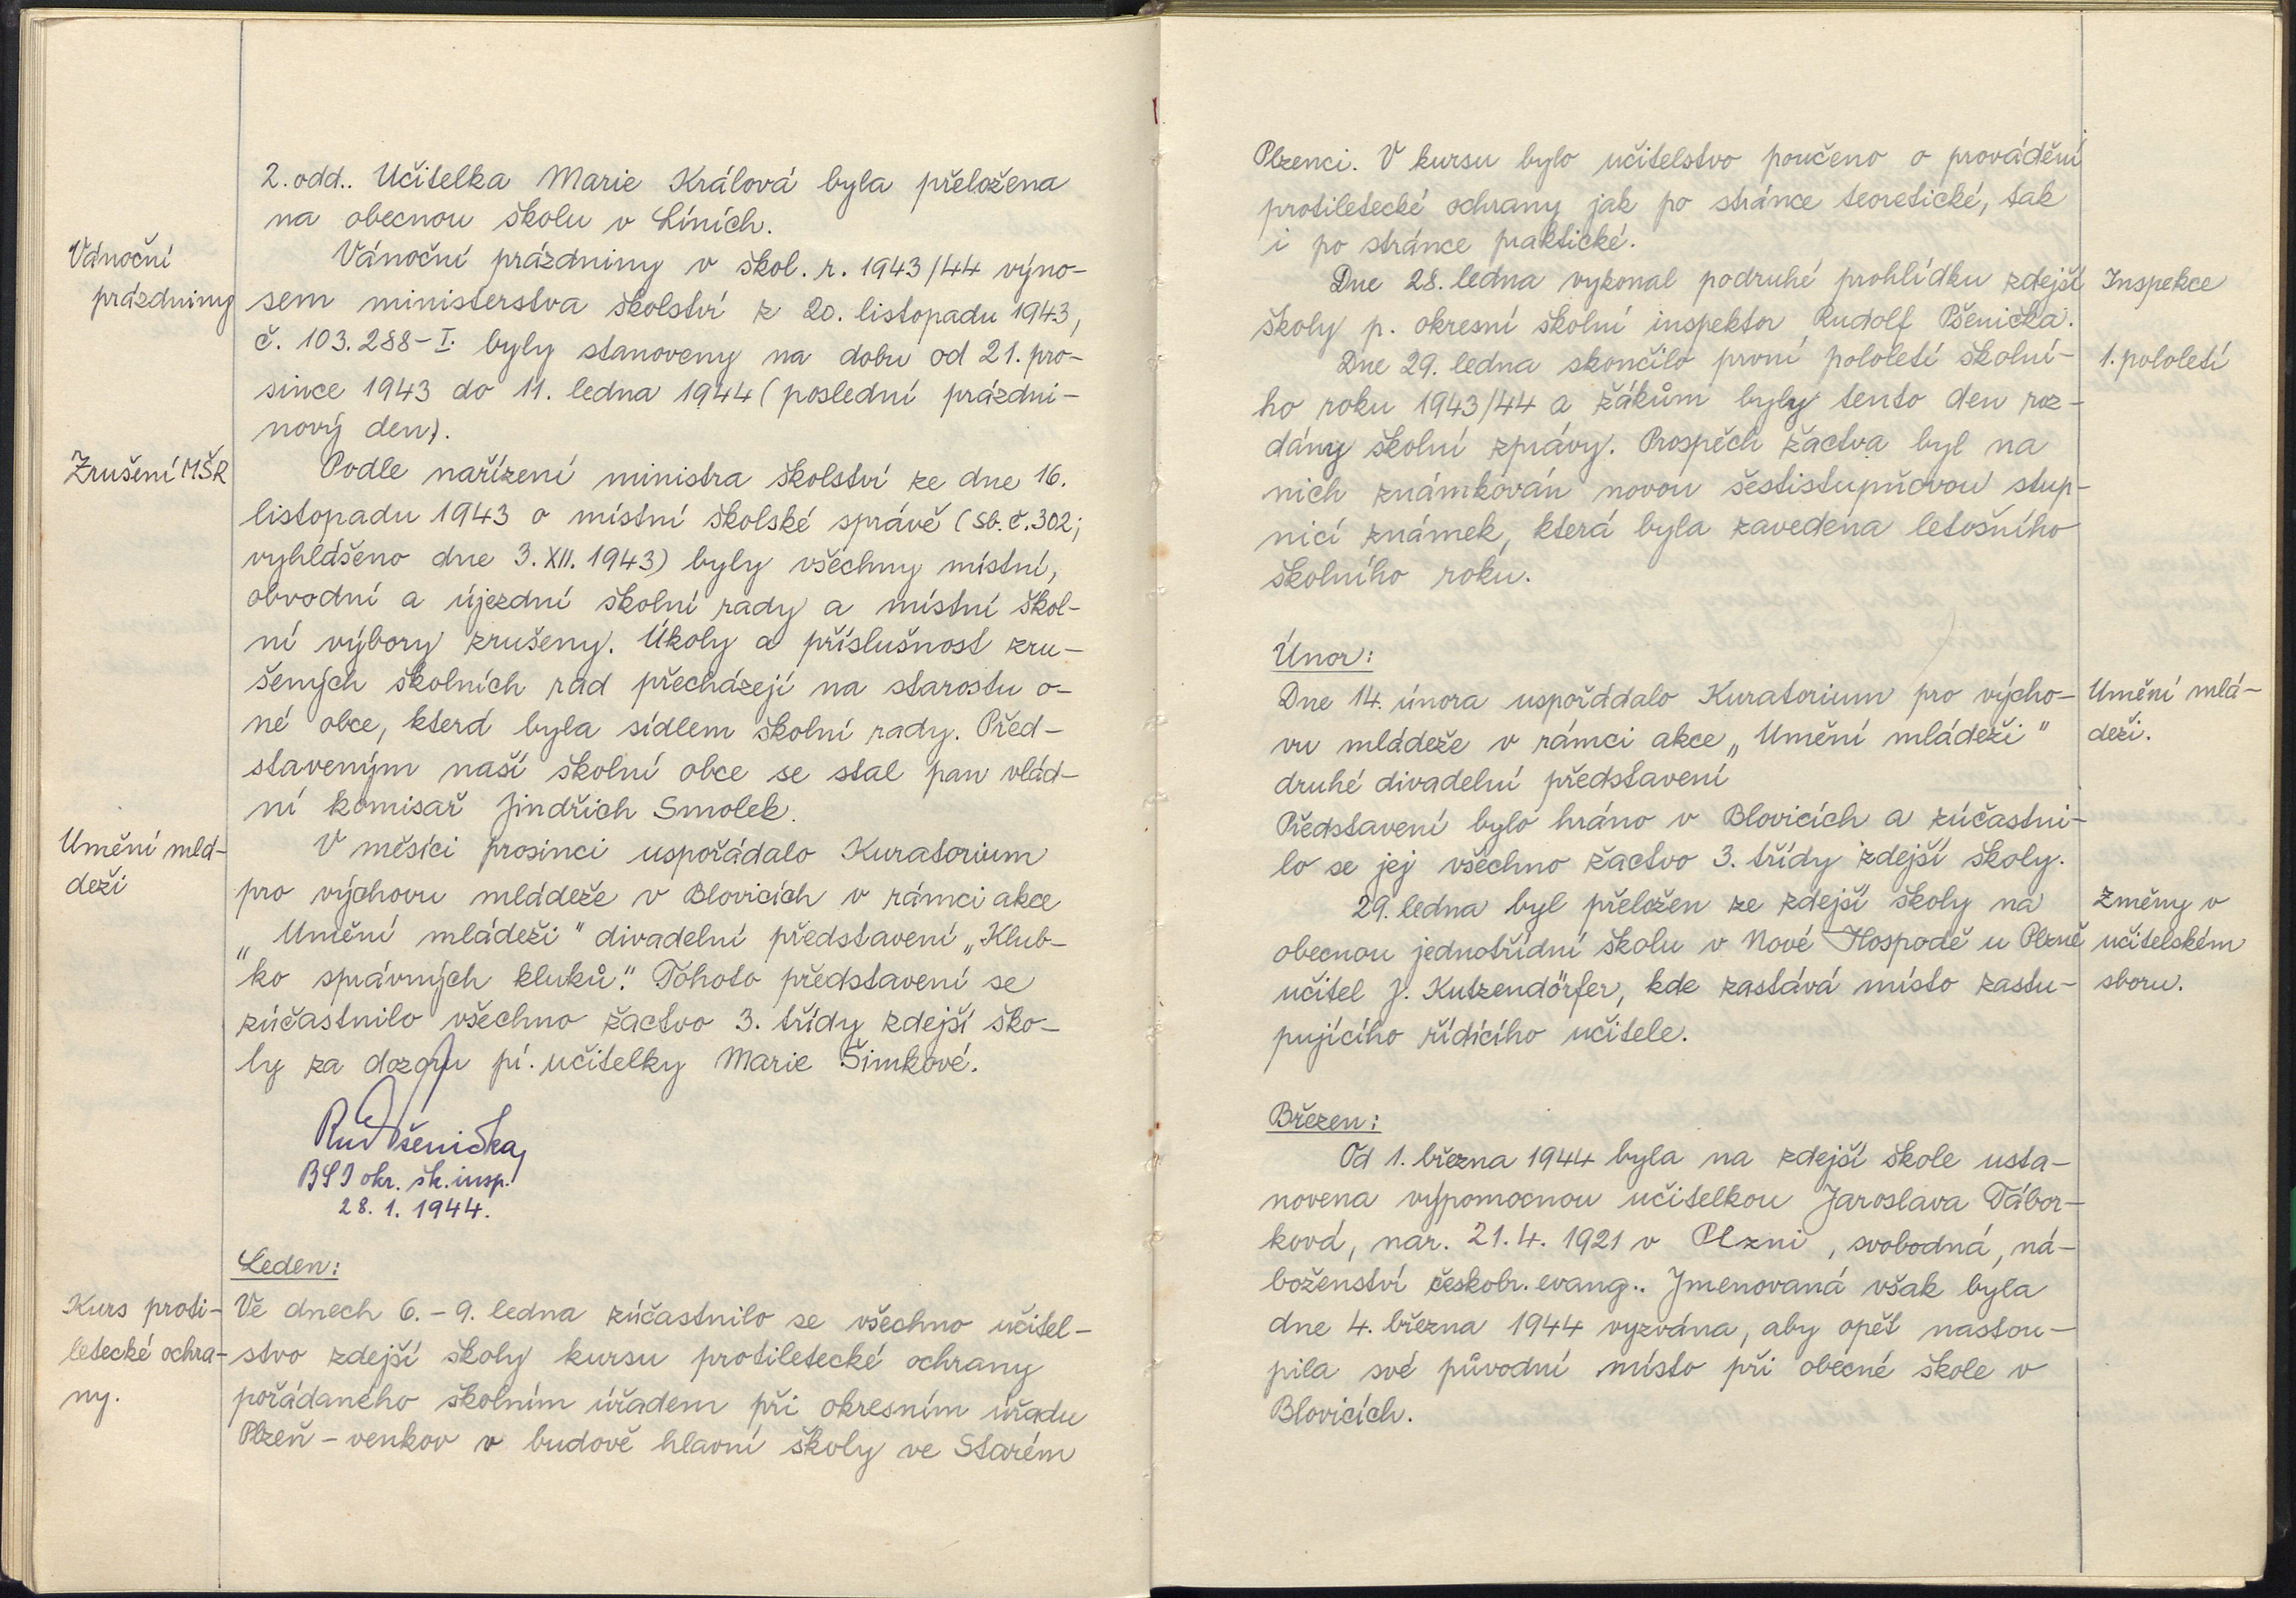 2. odd.. Učitelka Marie Králová byla přeložena
na obecnou školu v Líních.
Vánoční
prázdniny
Vánoční prázdniny v škol. r. 1943/44 výno-
sem ministerstva školství z 20. listopadu 1943,
č. 103.288-I. byly stanoveny na dobu od 21. pro-
since 1943 do 11. ledna 1944 (poslední prázdni-
nový den).
Zrušení MŠR
Podle nařízení ministra školství ze dne 16.
listopadu 1943 o místní školské správě (Sb. č. 302;
vyhlášeno dne 3. XII. 1943) byly všechny místní,
obvodní a újezdní školní rady a místní škol-
ní výbory zrušeny. Úkoly a příslušnost zru-
šených školních rad přecházejí na starostu o-
né obce, která byla sídlem školní rady. Před-
staveným naší školní obce se stal pan vlád-
ní komisař Jindřich Smolek.
Umění mlá-
deži
V měsíci prosinci uspořádalo Kuratorium
pro výchovu mládeže v Blovicích v rámci akce
„Umění mládeži" divadelní představení „Klub-
ko správných kluků". Tohoto představení se
zúčastnilo všechno žactvo 3. třídy zdejší ško-
ly za dozoru pí. učitelky Marie Šimkové.
Rud Pšenička,
BSI okr. šk. insp.
28. 1. 1944.
Leden:
Kurs proti-
letecké ochra-
ny.
Ve dnech 6. - 9. ledna zúčastnilo se všechno učitel-
stvo zdejší školy kursu protiletecké ochrany
pořádaného školním úřadem při okresním úřadu
Plzeň - venkov v budově hlavní školy ve Starém
Plzenci. V kursu bylo učitelstvo poučeno o provádění
protiletecké ochrany jak po stránce teoretické, tak
i po stránce praktické.
Dne 28. ledna vykonal podruhé prohlídku zdejší
školy p. okresní školní inspektor Rudolf Pšenička.
Inspekce
Dne 29. ledna skončilo první pololetí školní-
ho roku 1943/44 a žákům byly tento den roz-
dány školní zprávy. Prospěch žactva byl na
nich známkován novou šestistupňovou stup-
nicí známek, která byla zavedena letošního
školního roku.
1. pololetí
Únor:
Dne 14. února uspořádalo Kuratorium pro výcho-
vu mládeže v rámci akce „Umění mládeži"
druhé divadelní představení
Představení bylo hráno v Blovicích a zúčastni-
lo se jej všechno žactvo 3. třídy zdejší školy.
Umění mlá-
deži.
29. ledna byl přeložen ze zdejší školy na
obecnou jednotřídní školu v Nové Hospodě u Plzně
učitel J. Kutzendörfer, kde zastává místo zastu-
pujícího řídícího učitele.
Změny v
učitelském
sboru.
Březen:
Od 1. března 1944 byla na zdejší škole usta-
novena výpomocnou učitelkou Jaroslava Tábor-
ková, nar. 21. 4. 1921 v Plzni, svobodná, ná-
boženství českobr. evang.. Jmenovaná však byla
dne 4. března 1944 vyzvána, aby opět nastou-
pila své původní místo při obecné škole v
Blovicích.